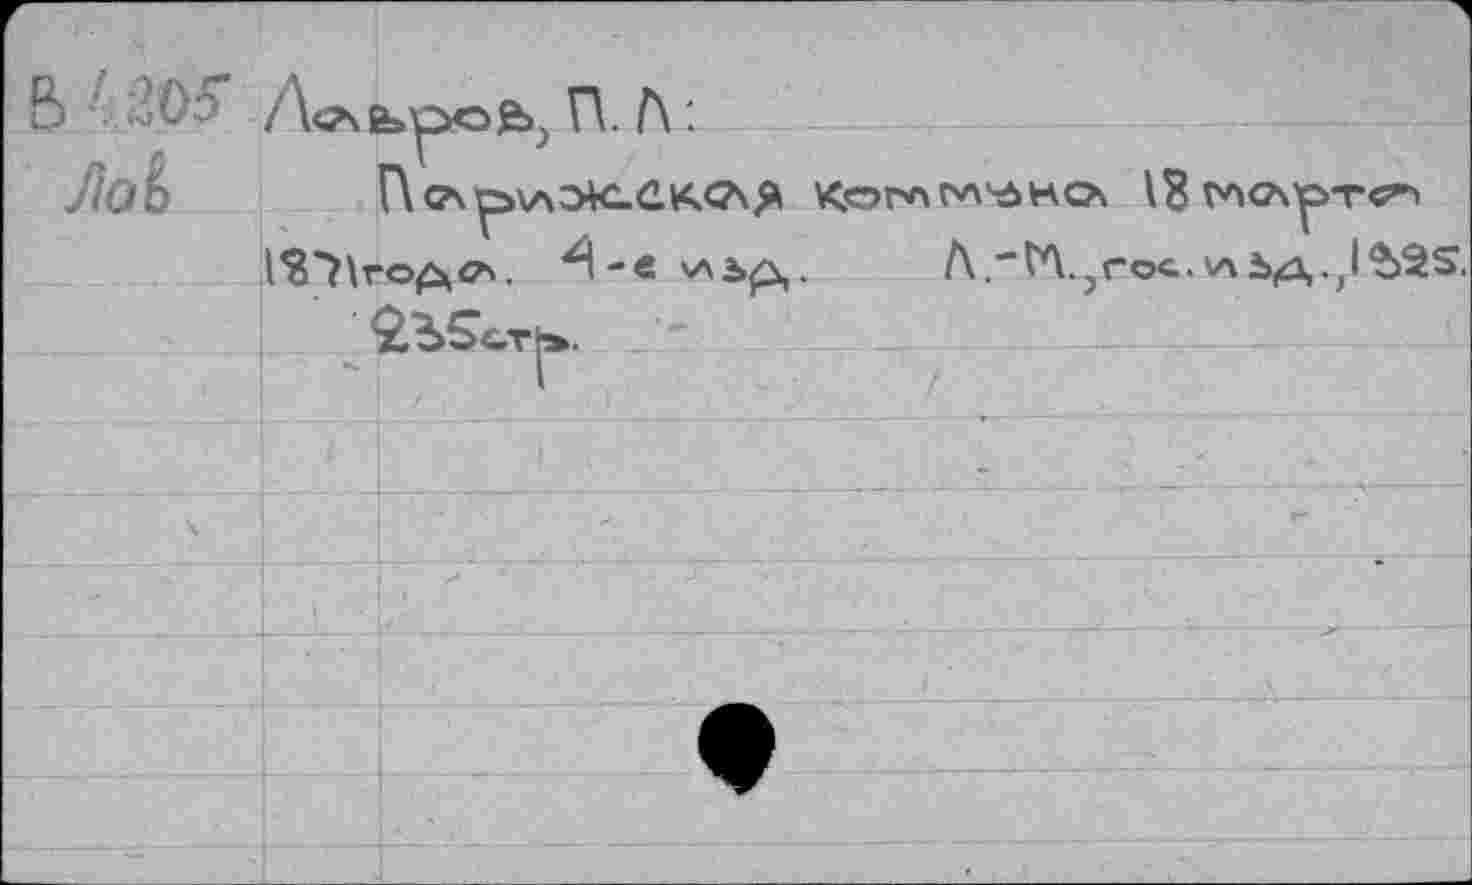 В 4205 Лавров, П. Л:
Лав Парижская коммӱна 18 марта
1871 года. 4-е изд. Л.-М., гос. изд., 1925.
235 стр.